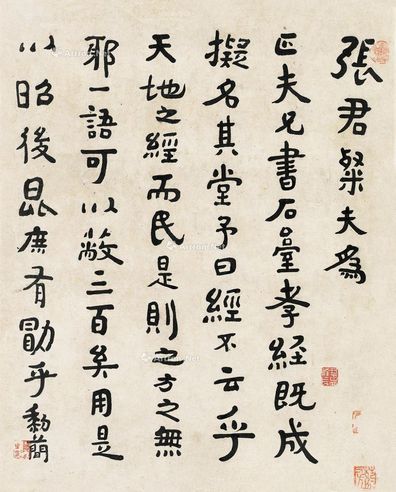 張君粲夫為
正夫兄書石臺孝經既成
擬名其堂予曰經不云乎
天地之經而民是則之方之無
邪一語可以蔽三百矣用是
以昭後昆庶有勖乎黝蕳